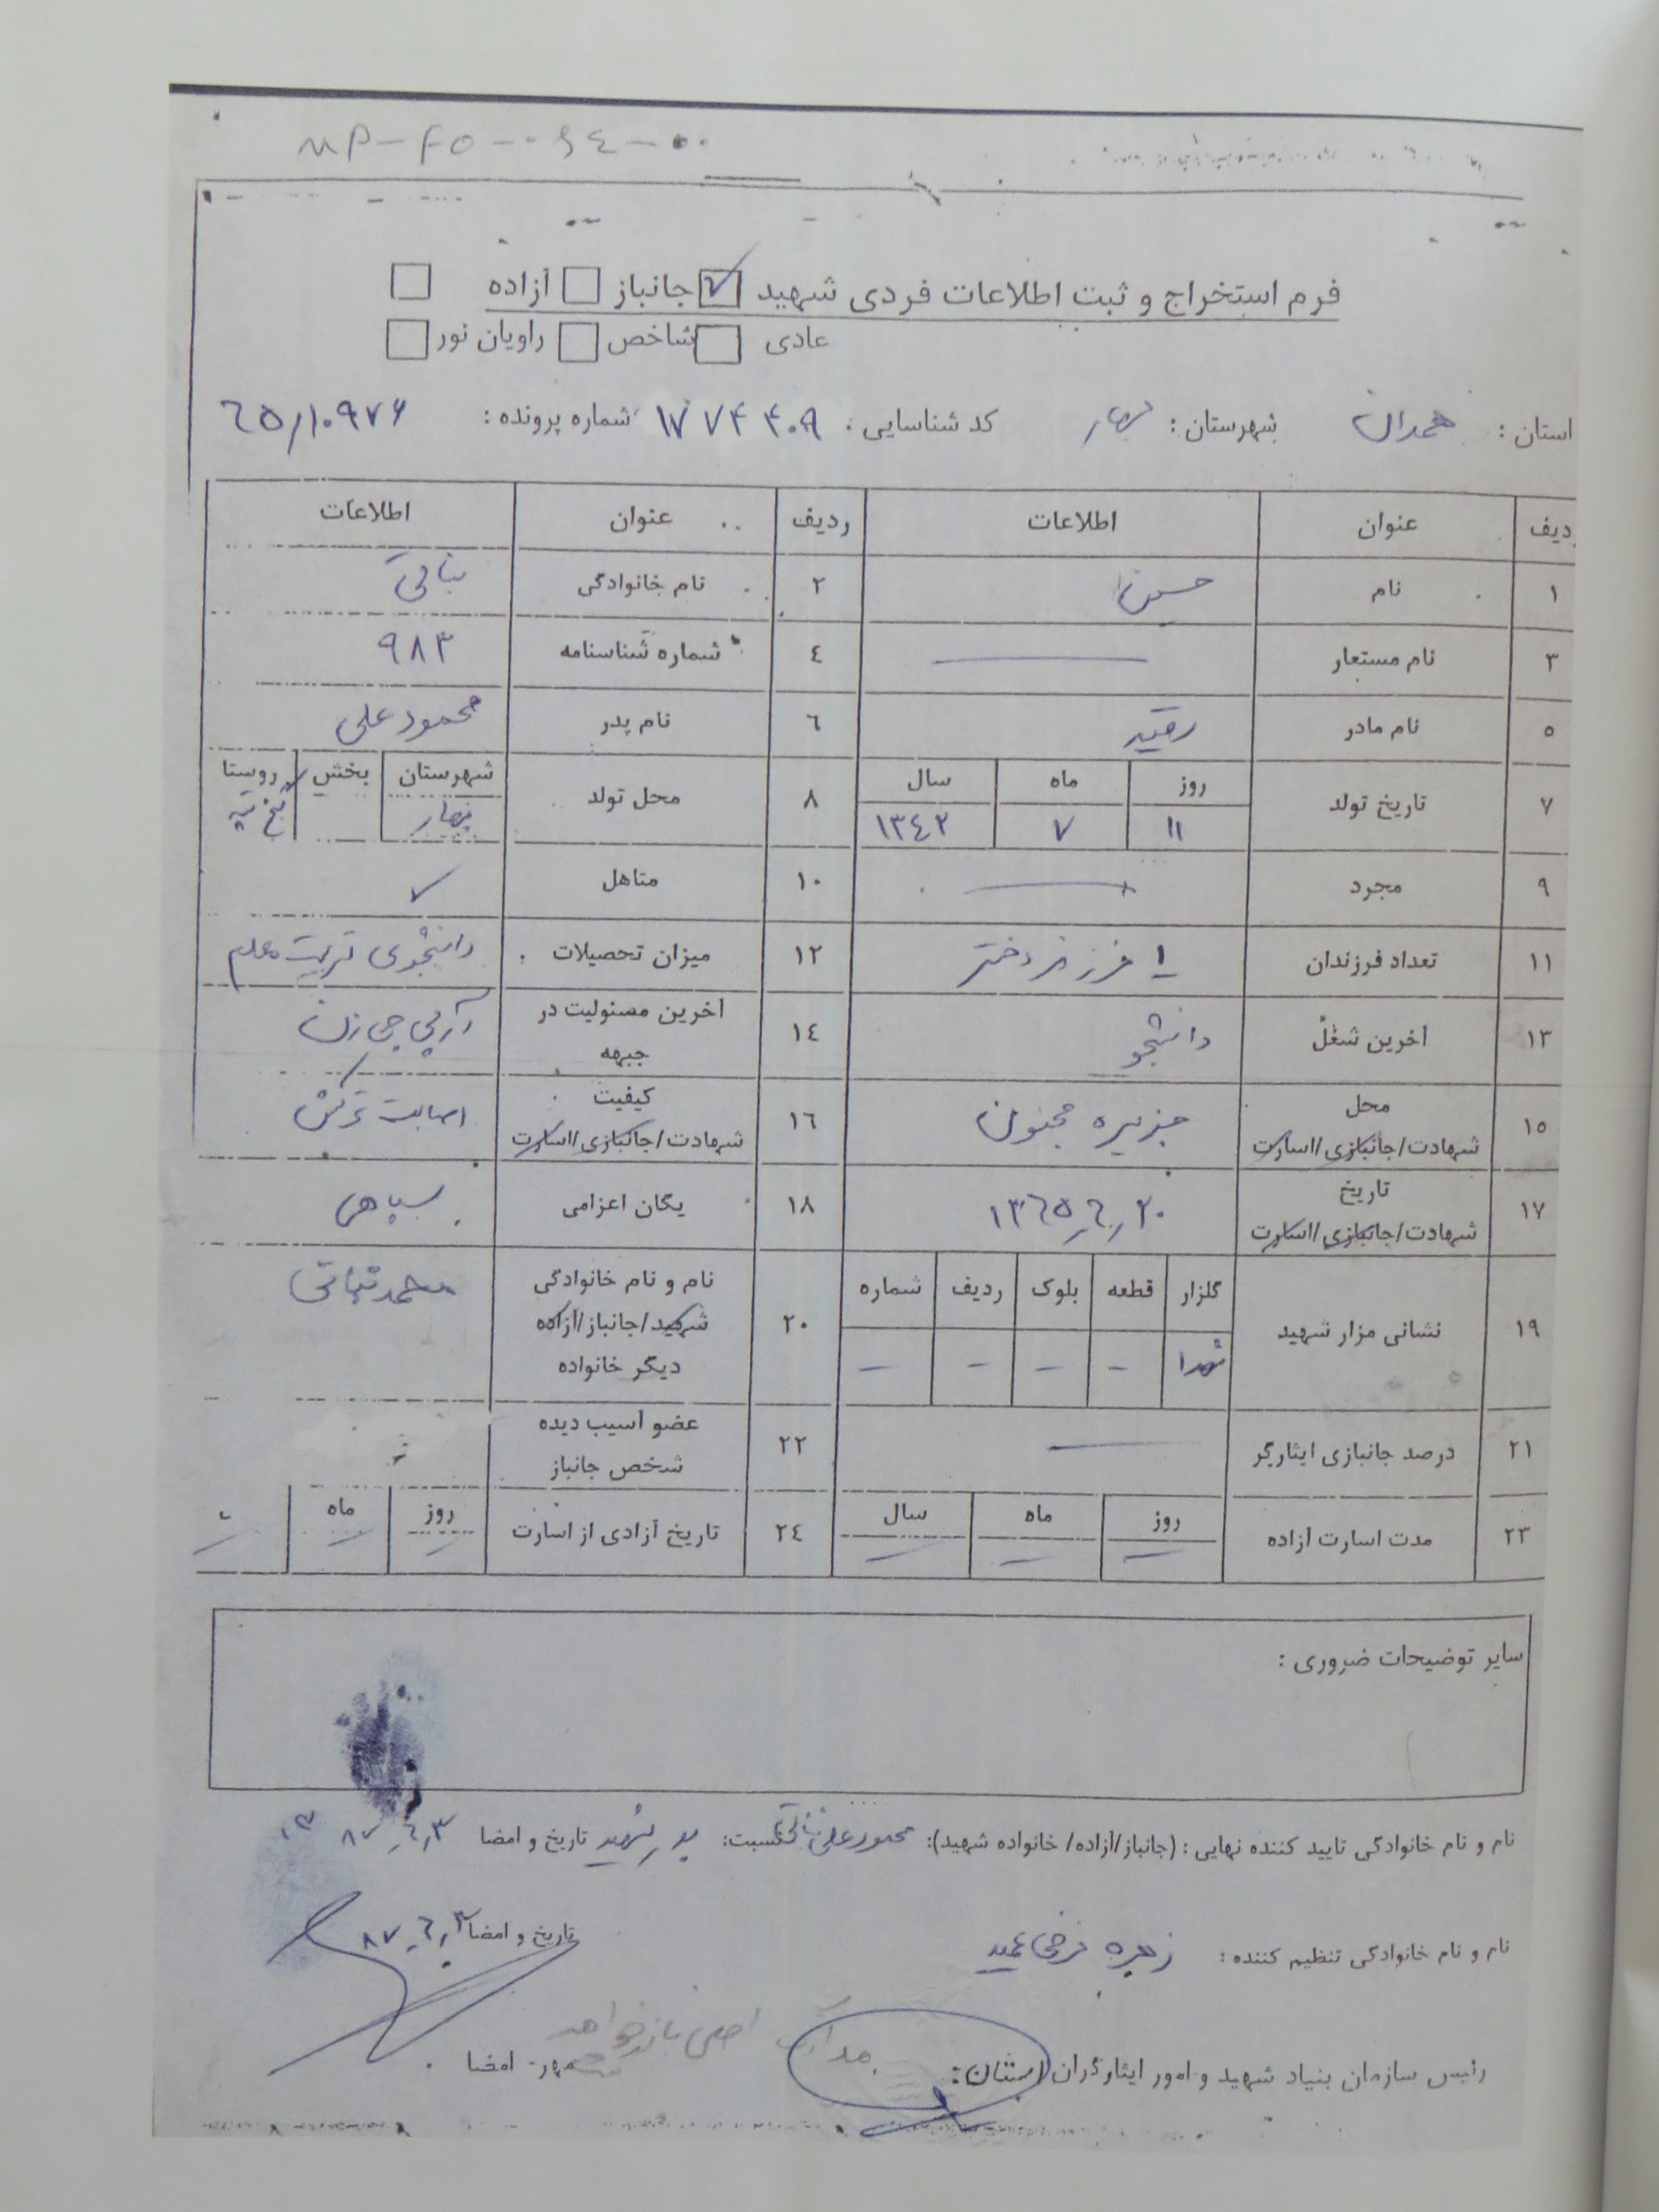 فرم استخراج و ثبت اطلاعات فردی شهید ☑ جانباز ☐ آزاده ☐
عادی ☐ شاخص ☐ راویان نور ☐
استان : همدان شهرستان : بهار کد شناسایی : ۱۷۷۴۴۰۹ شماره پرونده : ٦٥/۱۰۹۷۶
ردیف عنوان اطلاعات ردیف عنوان اطلاعات
۱ نام حسین ۲ نام خانوادگی
۳ نام مستعار — ٤ شماره شناسنامه ۹۸۳
٥ نام مادر رقیه ٦ نام پدر محمودعلی
۷ تاریخ تولد روز ۱۱ ماه ۷ سال ۱۳٤۲ ۸ محل تولد شهرستان بهار بخش روستا
۹ مجرد — ۱۰ متاهل ✓
۱۱ تعداد فرزندان ۱ فرزند دختر ۱۲ میزان تحصیلات دانشجوی تربیت معلم
۱۳ آخرین شغل دانشجو ۱٤ آخرین مسئولیت در جبهه آرپی جی زن
۱٥ محل شهادت/جانبازی/اسارت جزیره مجنون ۱٦ کیفیت شهادت/جانبازی/اسارت اصابت ترکش
۱۷ تاریخ شهادت/جانبازی/اسارت ۱۳٦٥٫٦٫۲۰ ۱۸ یگان اعزامی سپاهی
۱۹ نشانی مزار شهید گلزار شهدا قطعه - بلوک - ردیف - شماره - ۲۰ نام و نام خانوادگی شهید/جانباز/آزاده دیگر خانواده محمد
۲۱ درصد جانبازی ایثارگر — ۲۲ عضو آسیب دیده شخص جانباز
۲۳ مدت اسارت آزاده روز - ماه - سال - ۲٤ تاریخ آزادی از اسارت روز - ماه -
سایر توضیحات ضروری :
نام و نام خانوادگی تایید کننده نهایی : (جانباز/آزاده/ خانواده شهید): محمودعلی نسبت: پدر شهید تاریخ و امضا ۸۷٫٦٫۳
نام و نام خانوادگی تنظیم کننده : زهره تاریخ و امضا ۸۷٫٦٫۳
رئیس سازمان بنیاد شهید و امور ایثارگران استان: مهر- امضا